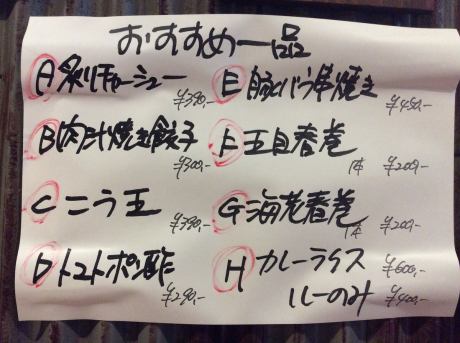 おすすめ一品
A 炙りチャーシュー ¥390,-
B 肉汁焼き餃子 ¥300,-
C ニラ玉 ¥390,-
D トマトポン酢 ¥290,-
E 豚バラ串焼き ¥450,-
F 五目春巻 1本 ¥200,-
G 海老春巻 1本 ¥200,-
H カレーライス ¥600,-
ルーのみ ¥400,-